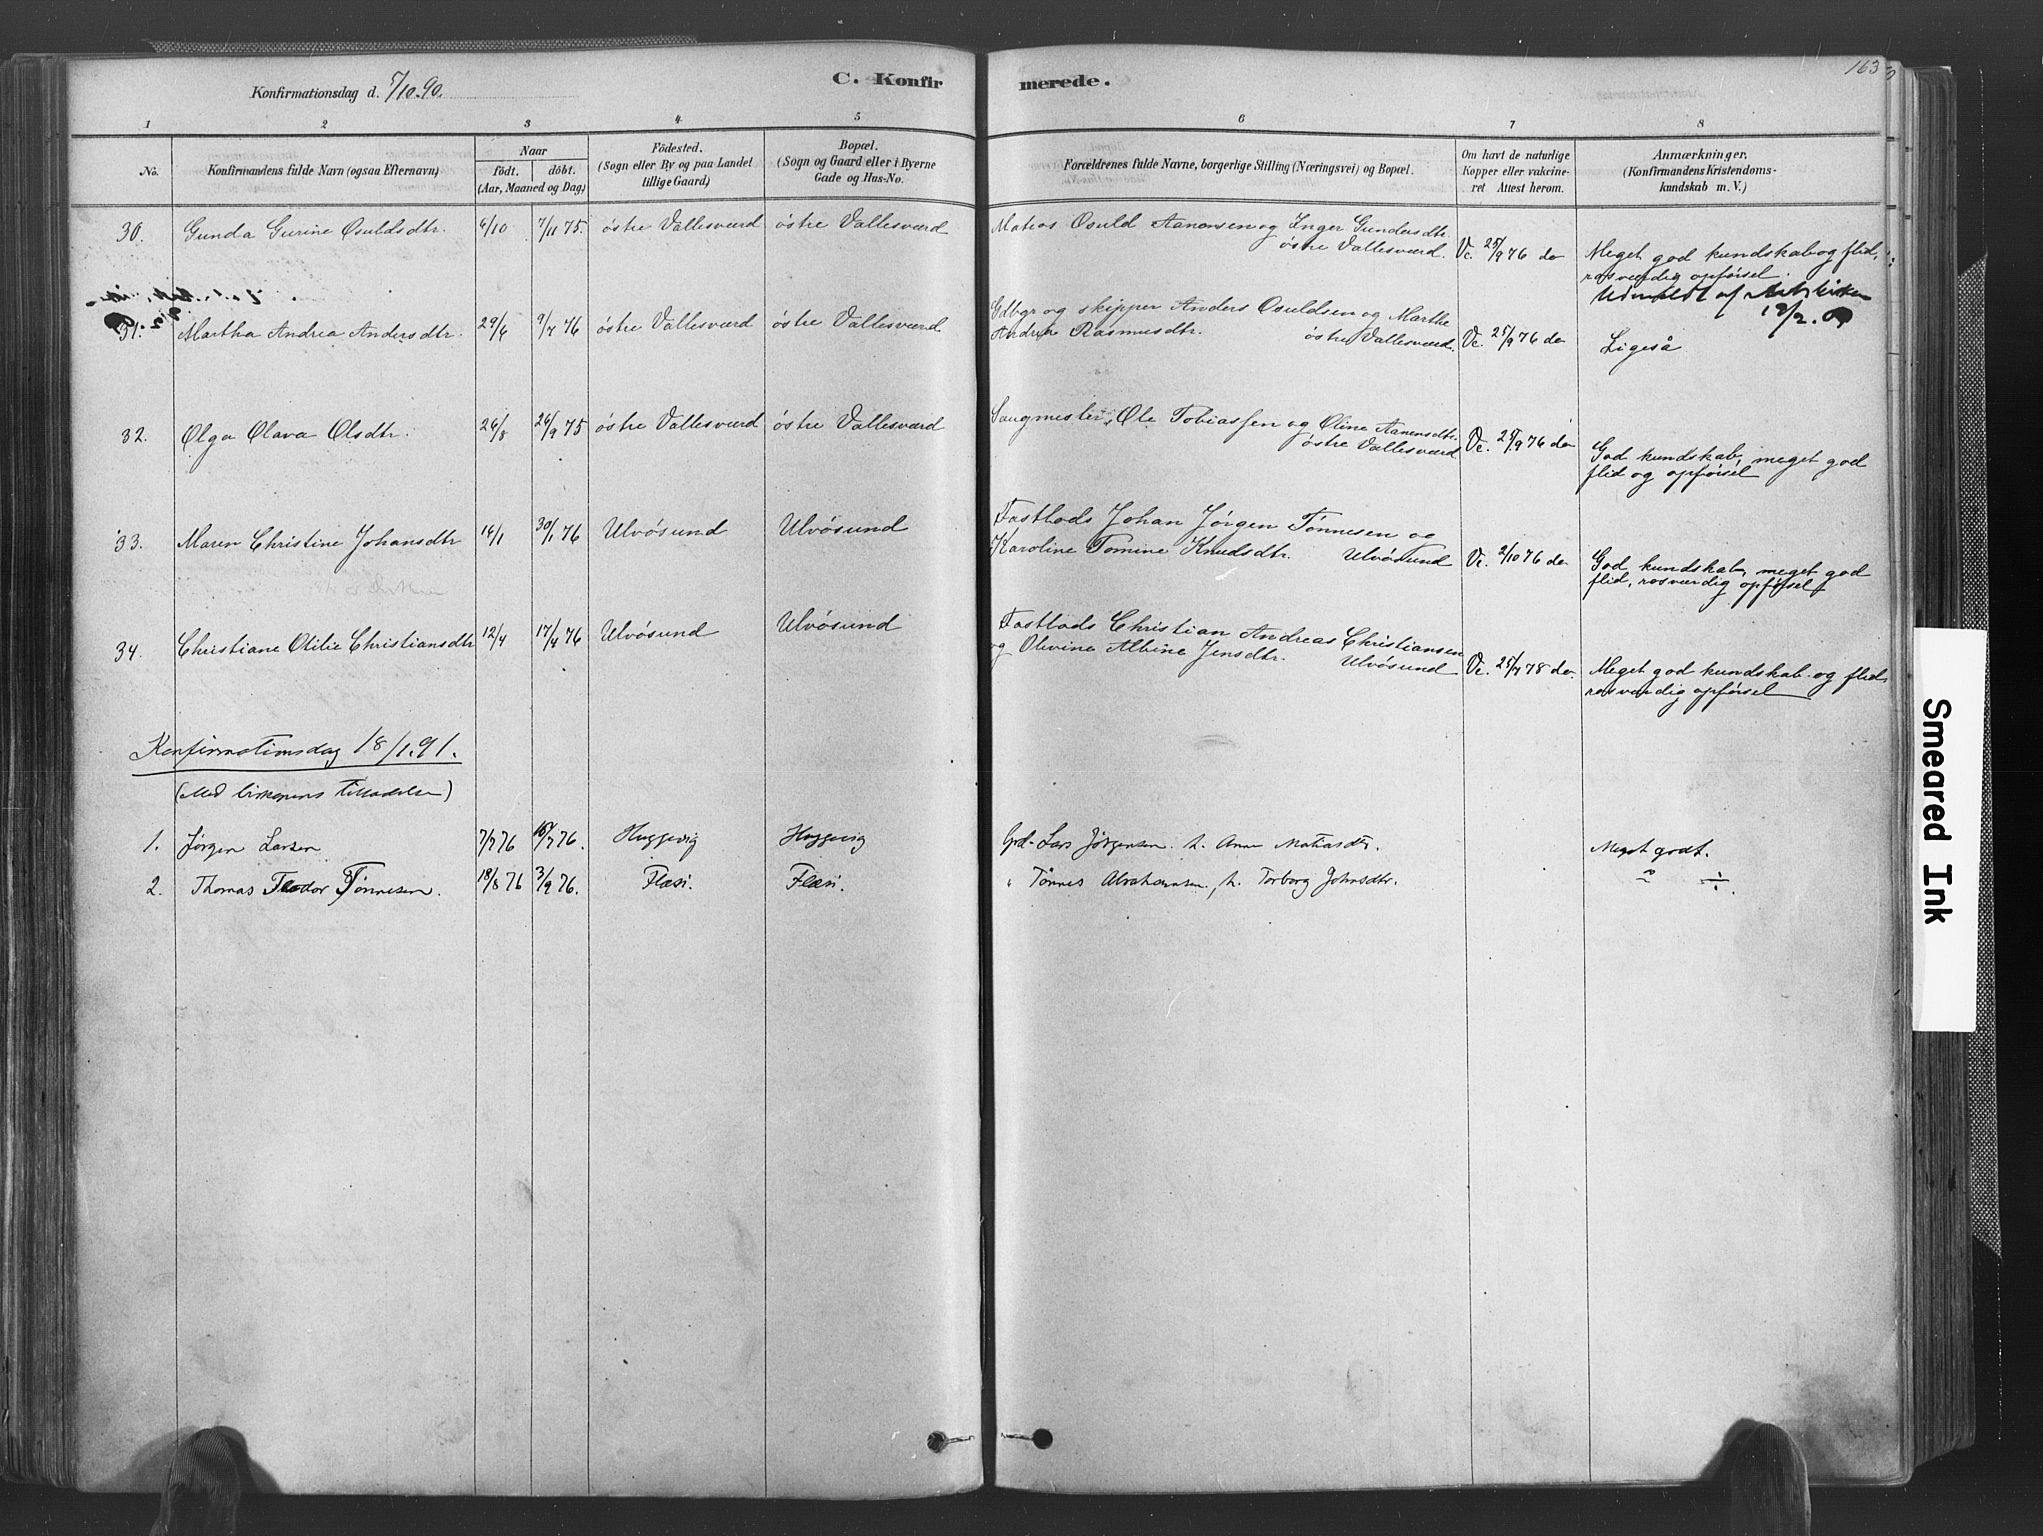 163
Konfirmationsdag d. 5/10.90.
C. Konfirmerede.
1 2 3 4 5 6 7 8
No.
Konfirmandens fulde Navn (ogsaa Efternavn)
Naar
födt. döbt.
(Aar, Maaned og Dag)
Födested.
(Sogn eller By og paa Landet
tillige Gaard)
Bopæl.
(Sogn og Gaard eller i Byerne
Gade og Hus-No.
Forældrenes fulde Navne, borgerlige Stilling (Næringsvei) og Bopæl.
Om havt de naturlige
Kopper eller vakcine-
ret Attest herom.
Anmærkninger.
(Konfirmandens Kristendoms-
kundskab m. V.)
30. Gunda Gurine Osuldsdtr. 6/10 7/11 75. östre Vallesværd östre Vallesværd Matros Osuld Aanensen og Inger Gundersdtr.
östre Vallesværd. Vc. 25/9 76 do Meget god kundskab og flid,
rosværdig opförsel.
Udmeldt af
18/2.
31. Martha Andrea Andersdtr. 29/6 9/7 76 östre Vallesværd östre Vallesværd Gdbgr og skipper Anders Osuldsen og Marthe
Andrea Rasmusdtr. östre Vallesværd. Vc. 25/9 76 do Ligeså
32. Olga Olava Olsdtr. 26/8 26/9 75 östre Vallesværd östre Vallesværd Saugmester Ole Tobiassen og Oline Aanensdtr.
östre Vallesværd Vc. 25/9 76 do God kundskab, meget god
flid og opförsel
33. Maren Christine Johansdtr 14/1 30/1 76 Ulvösund Ulvösund Fastlods Johan Jörgen Tönnesen og
Karoline Tomine Knudsdtr. Ulvösund Vc. 2/10 76 do God kundskab, meget god
flid, rosværdig opförsel
34. Christiane Otilie Christiansdtr 12/4 17/4 76 Ulvösund Ulvösund Fastlods Christian Andreas Christiansen
og Olivine Albine Jensdtr. Ulvösund Vc. 25/7 78 do. Meget god kundskab og flid
rosværdig opförsel
Konfirmationsdag 18/1.91.
(Med biskopens tilladelse)
1. Jørgen Larsen 7/7 76 16/7 76. Huggevig Huggevig Gbd. Lars Jörgensen h. Anne Matiasdtr. Meget godt.
2. Thomas Teodor Tønnesen. 18/8 76 3/9 76. Flæsi. Flæsi. " Tönnes Abrahamsen, h. Torborg Johnsdtr. " ÷.
Smeared Ink